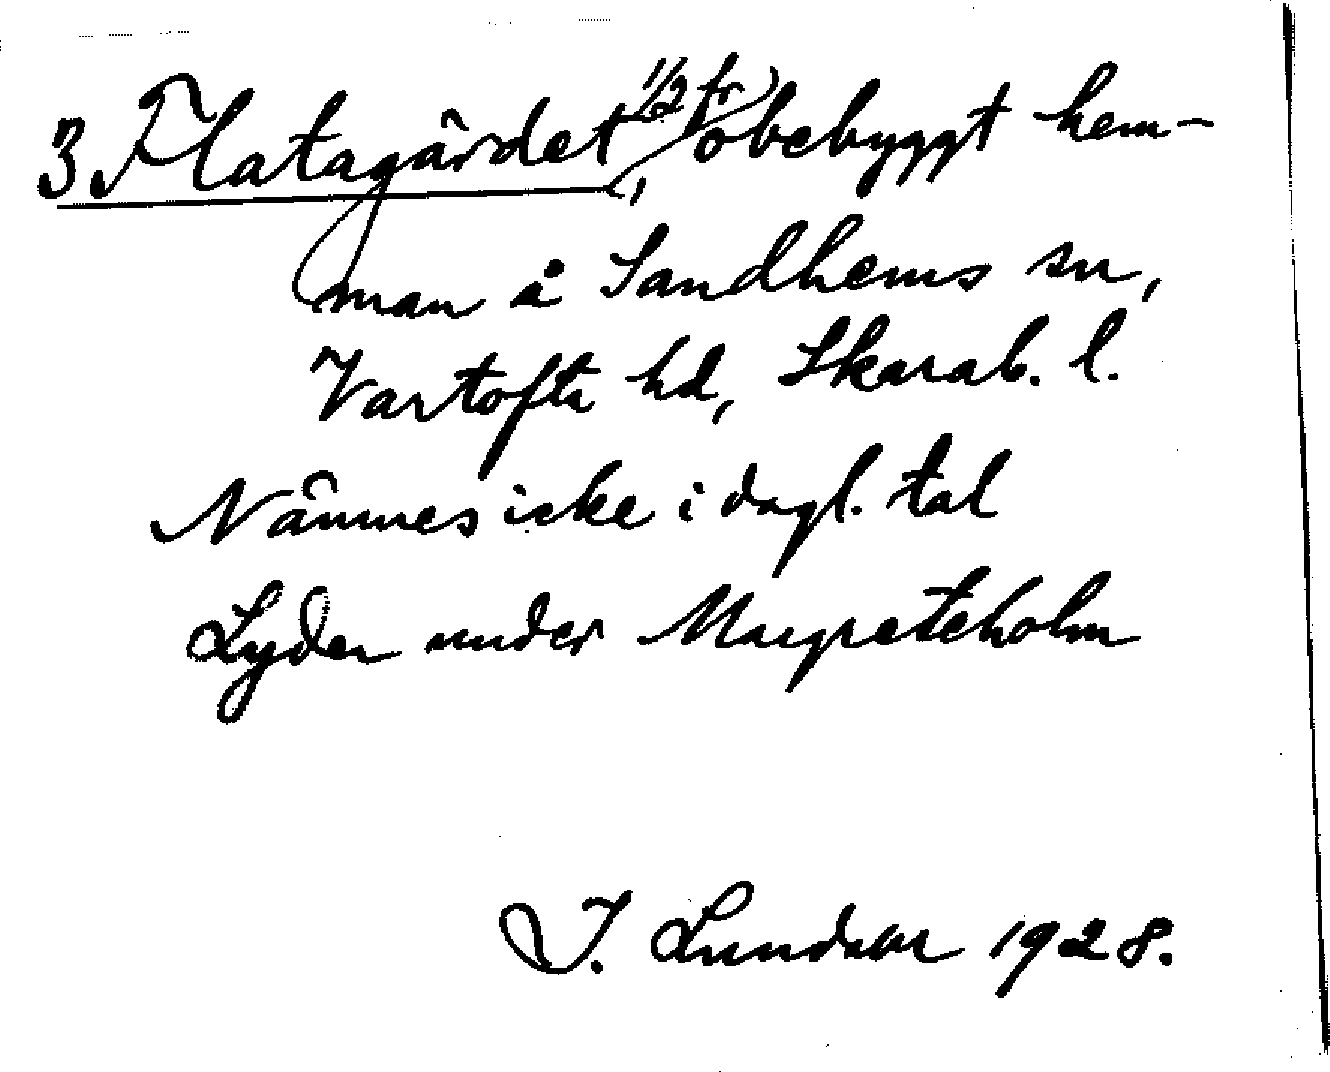 3. Flatagärdet, 1/2 fr obebyggt hem-
man å Sandhems sn,
Vartofta hd, Skarab. l.
Nämnes icke i dagl. tal
Lyder under Margreteholm
J. Lundahl 1928.